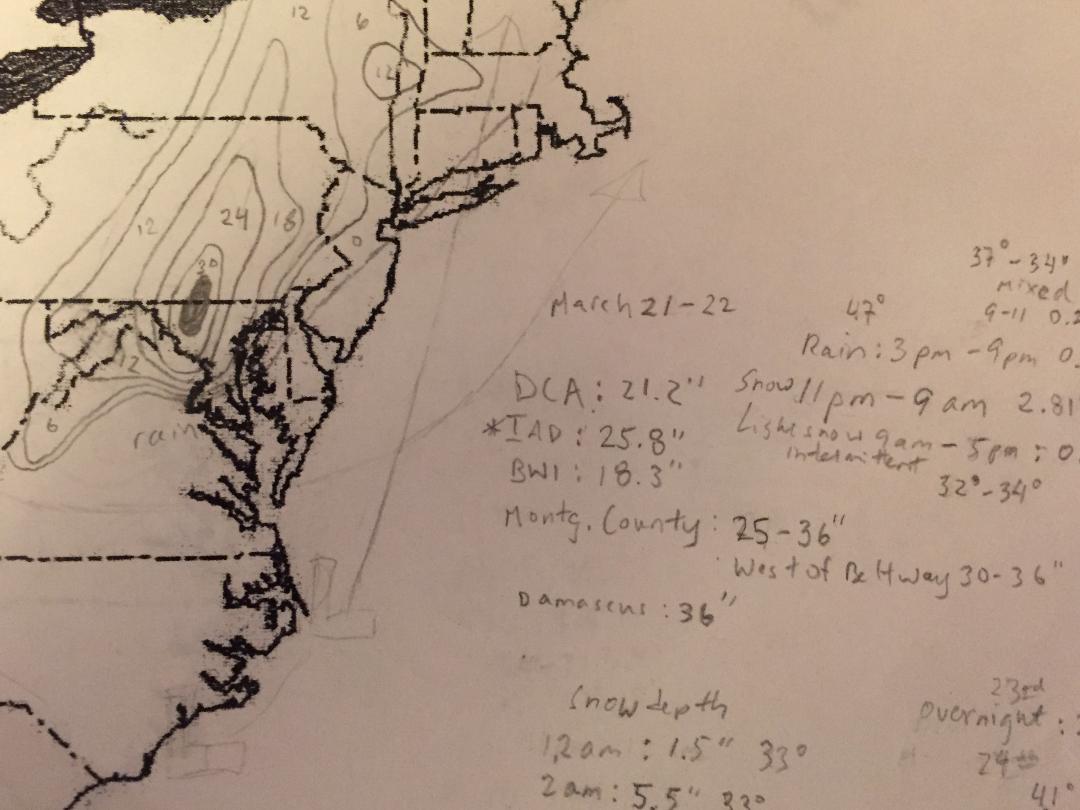 12
6
12
12
24
18
30
0
12
6
rain
37° - 34°
mixed
9-11 0.2
March 21-22
47°
Rain: 3pm - 9pm 0.
DCA: 21.2"
Snow 11pm - 9am 2.81
*IAD: 25.8"
Light snow 9am - 5pm: 0.
intermittent
BWI: 18.3"
32° - 34°
Montg. County: 25-36"
West of Beltway 30-36"
Damascus: 36"
Snow depth
23rd
overnight:
12am: 1.5" 33°
24th
2am: 5.5" 33°
41°